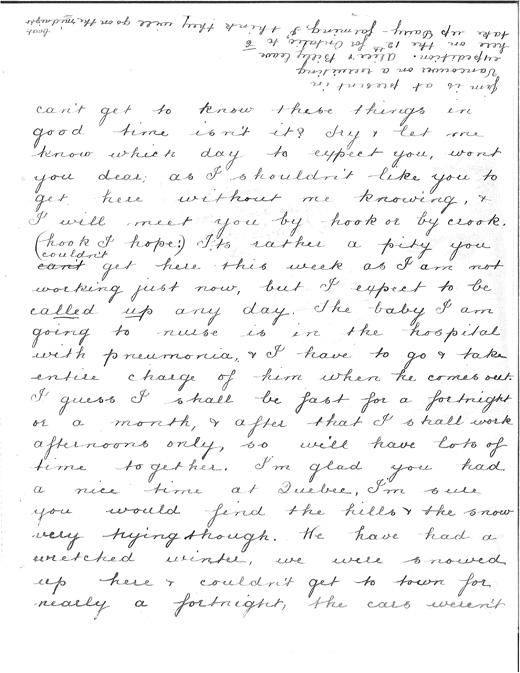 can't get to know these things in
good time isn't it? Try & let me
know which day to expect you, wont
you dear; as I shouldn't like you to
get here without me knowing, &
I will meet you by hook or by crook.
(hook I hope!) It's rather a pity you
couldn't
can't get here this week as I am not
working just now, but I expect to be
called up any day. The baby I am
going to nurse is in the hospital
with pneumonia, & I have to go & take
entire charge of him when he comes out.
I guess I shall be fast for a fortnight
or a month, & after that I shall work
afternoons only, so will have lots of
time together. I'm glad you had
a nice time at Quebec, I'm sure
you would find the hills & the snow
very trying though. We have had a
wretched winter, we were snowed
up here & couldn't get to town for
nearly a fortnight, the cars weren't
Jem is at present in
Vancouver on a recruiting
expedition. Alice & Billy leave
here on the 12th for Ontario, to
take up Dairy-farming, I think they will go on the midnight
boat